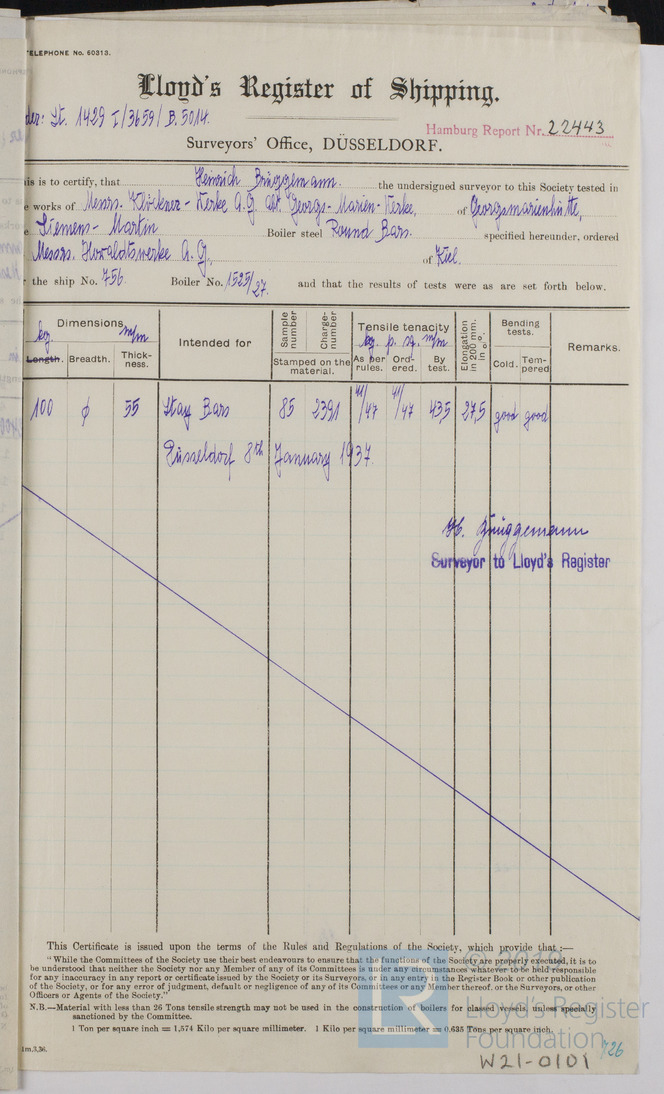 TELEPHONE No. 60313.
Lloyd's Register of Shipping.
der: St. 1429 I/3659/B.5014.
Hamburg Report Nr. 22443
Surveyors' Office, DÜSSELDORF.
is is to certify, that Heinrich Brüggemann. the undersigned surveyor to this Society tested in
e works of Messrs. Klöckner-Werke A.G. Abt. Georgs-Marien-Werke, of Georgsmarienhütte,
e Siemens-Martin Boiler steel Round Bars. specified hereunder, ordered
Messrs. Howaldtswerke A.G., of Kiel.
r the ship No. 756. Boiler No. 1525/27. and that the results of tests were as are set forth below.
Dimensions, Intended for Sample number Charge-number Tensile tenacity Elongation in 200 mm. in %. Bending tests. Remarks.
kg. m/m kg. p. sq. m/m
Length. Breadth. Thick-ness. Stamped on the material. As per rules. Ord-ered. By test. Cold. Tem-pered
100 ϕ 55 Stay Bars 85 2391 41/47 41/47 43,5 27,5 good good
Düsseldorf 8th January 1937.
H. Brüggemann
Surveyor to Lloyd's Register
This Certificate is issued upon the terms of the Rules and Regulations of the Society, which provide that :—
"While the Committees of the Society use their best endeavours to ensure that the functions of the Society are properly executed, it is to
be understood that neither the Society nor any Member of any of its Committees is under any circumstances whatever to be held responsible
for any inaccuracy in any report or certificate issued by the Society or its Surveyors, or in any entry in the Register Book or other publication
of the Society, or for any error of judgment, default or negligence of any of its Committees or any Member thereof, or the Surveyors, or other
Officers or Agents of the Society."
N.B.—Material with less than 26 Tons tensile strength may not be used in the construction of boilers for classed vessels, unless specially
sanctioned by the Committee.
1 Ton per square inch = 1,574 Kilo per square millimetre. 1 Kilo per square millimetre = 0,635 Tons per square inch.
1m.3,36.
Lloyd's Register
Foundation
W21-0101